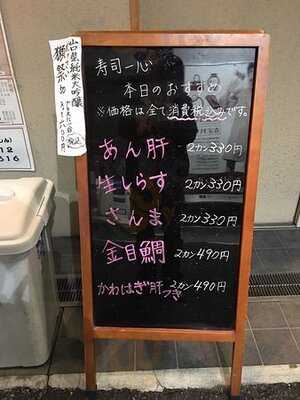 寿司一心
本日のおすすめ
※価格は全て消費税込みです。
あん肝 2カン330円
生しらす 2カン330円
さんま 2カン330円
金目鯛 2カン490円
かわはぎ肝つき 2カン490円
山口県純米大吟醸
獺祭
12
516